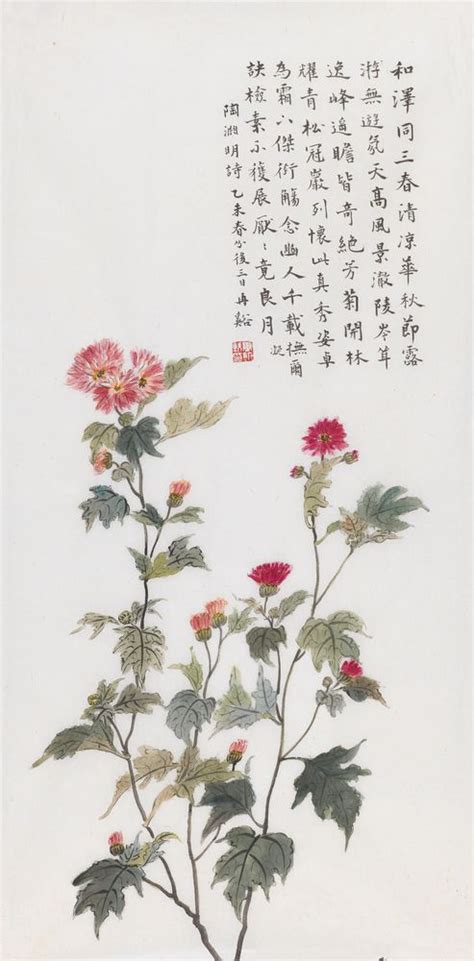 和澤同三春清凉華秋節露
游無遊氛天高風景澈陵岑聳
逸峰遥瞻皆奇絶芳菊開林
耀青松冠巖列懷此真秀姿卓
為霜下傑銜觴念幽人千載撫爾
訣檢素不獲展厭〻竟良月 凝
陶淵明詩乙未春分後三日